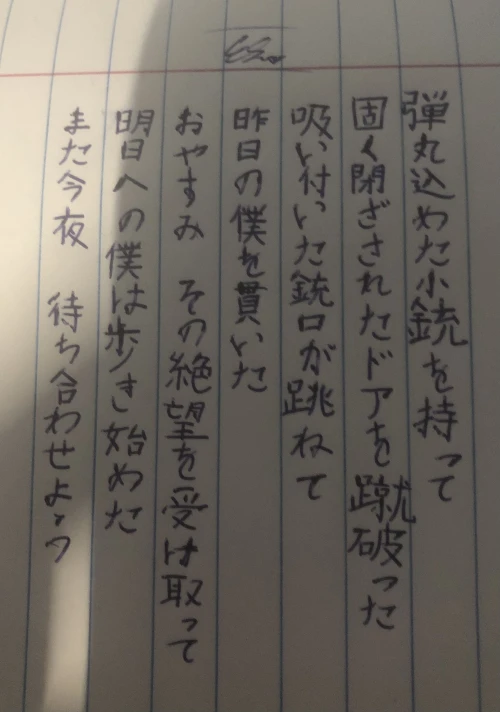 弾丸込めた小銃を持って
固く閉ざされたドアを蹴破った
吸い付いた銃口が跳ねて
昨日の僕を貫いた
おやすみ　その絶望を受け取って
明日への僕は歩き始めた
また今夜　待ち合わせよう